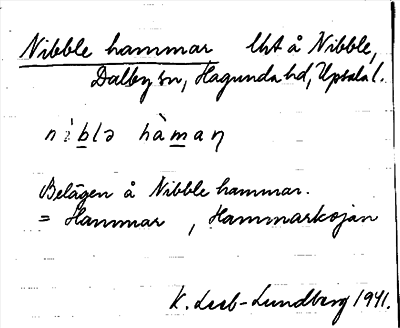 Nibble hammar lht å Nibble,
Dalby sn, Hagunda hd, Upsala l.
nìb̲lə hàm̲aṛ
Belägen å Nibble hammar.
= Hammar, Hammarkojan
K. Leeb-Lundberg 1941.